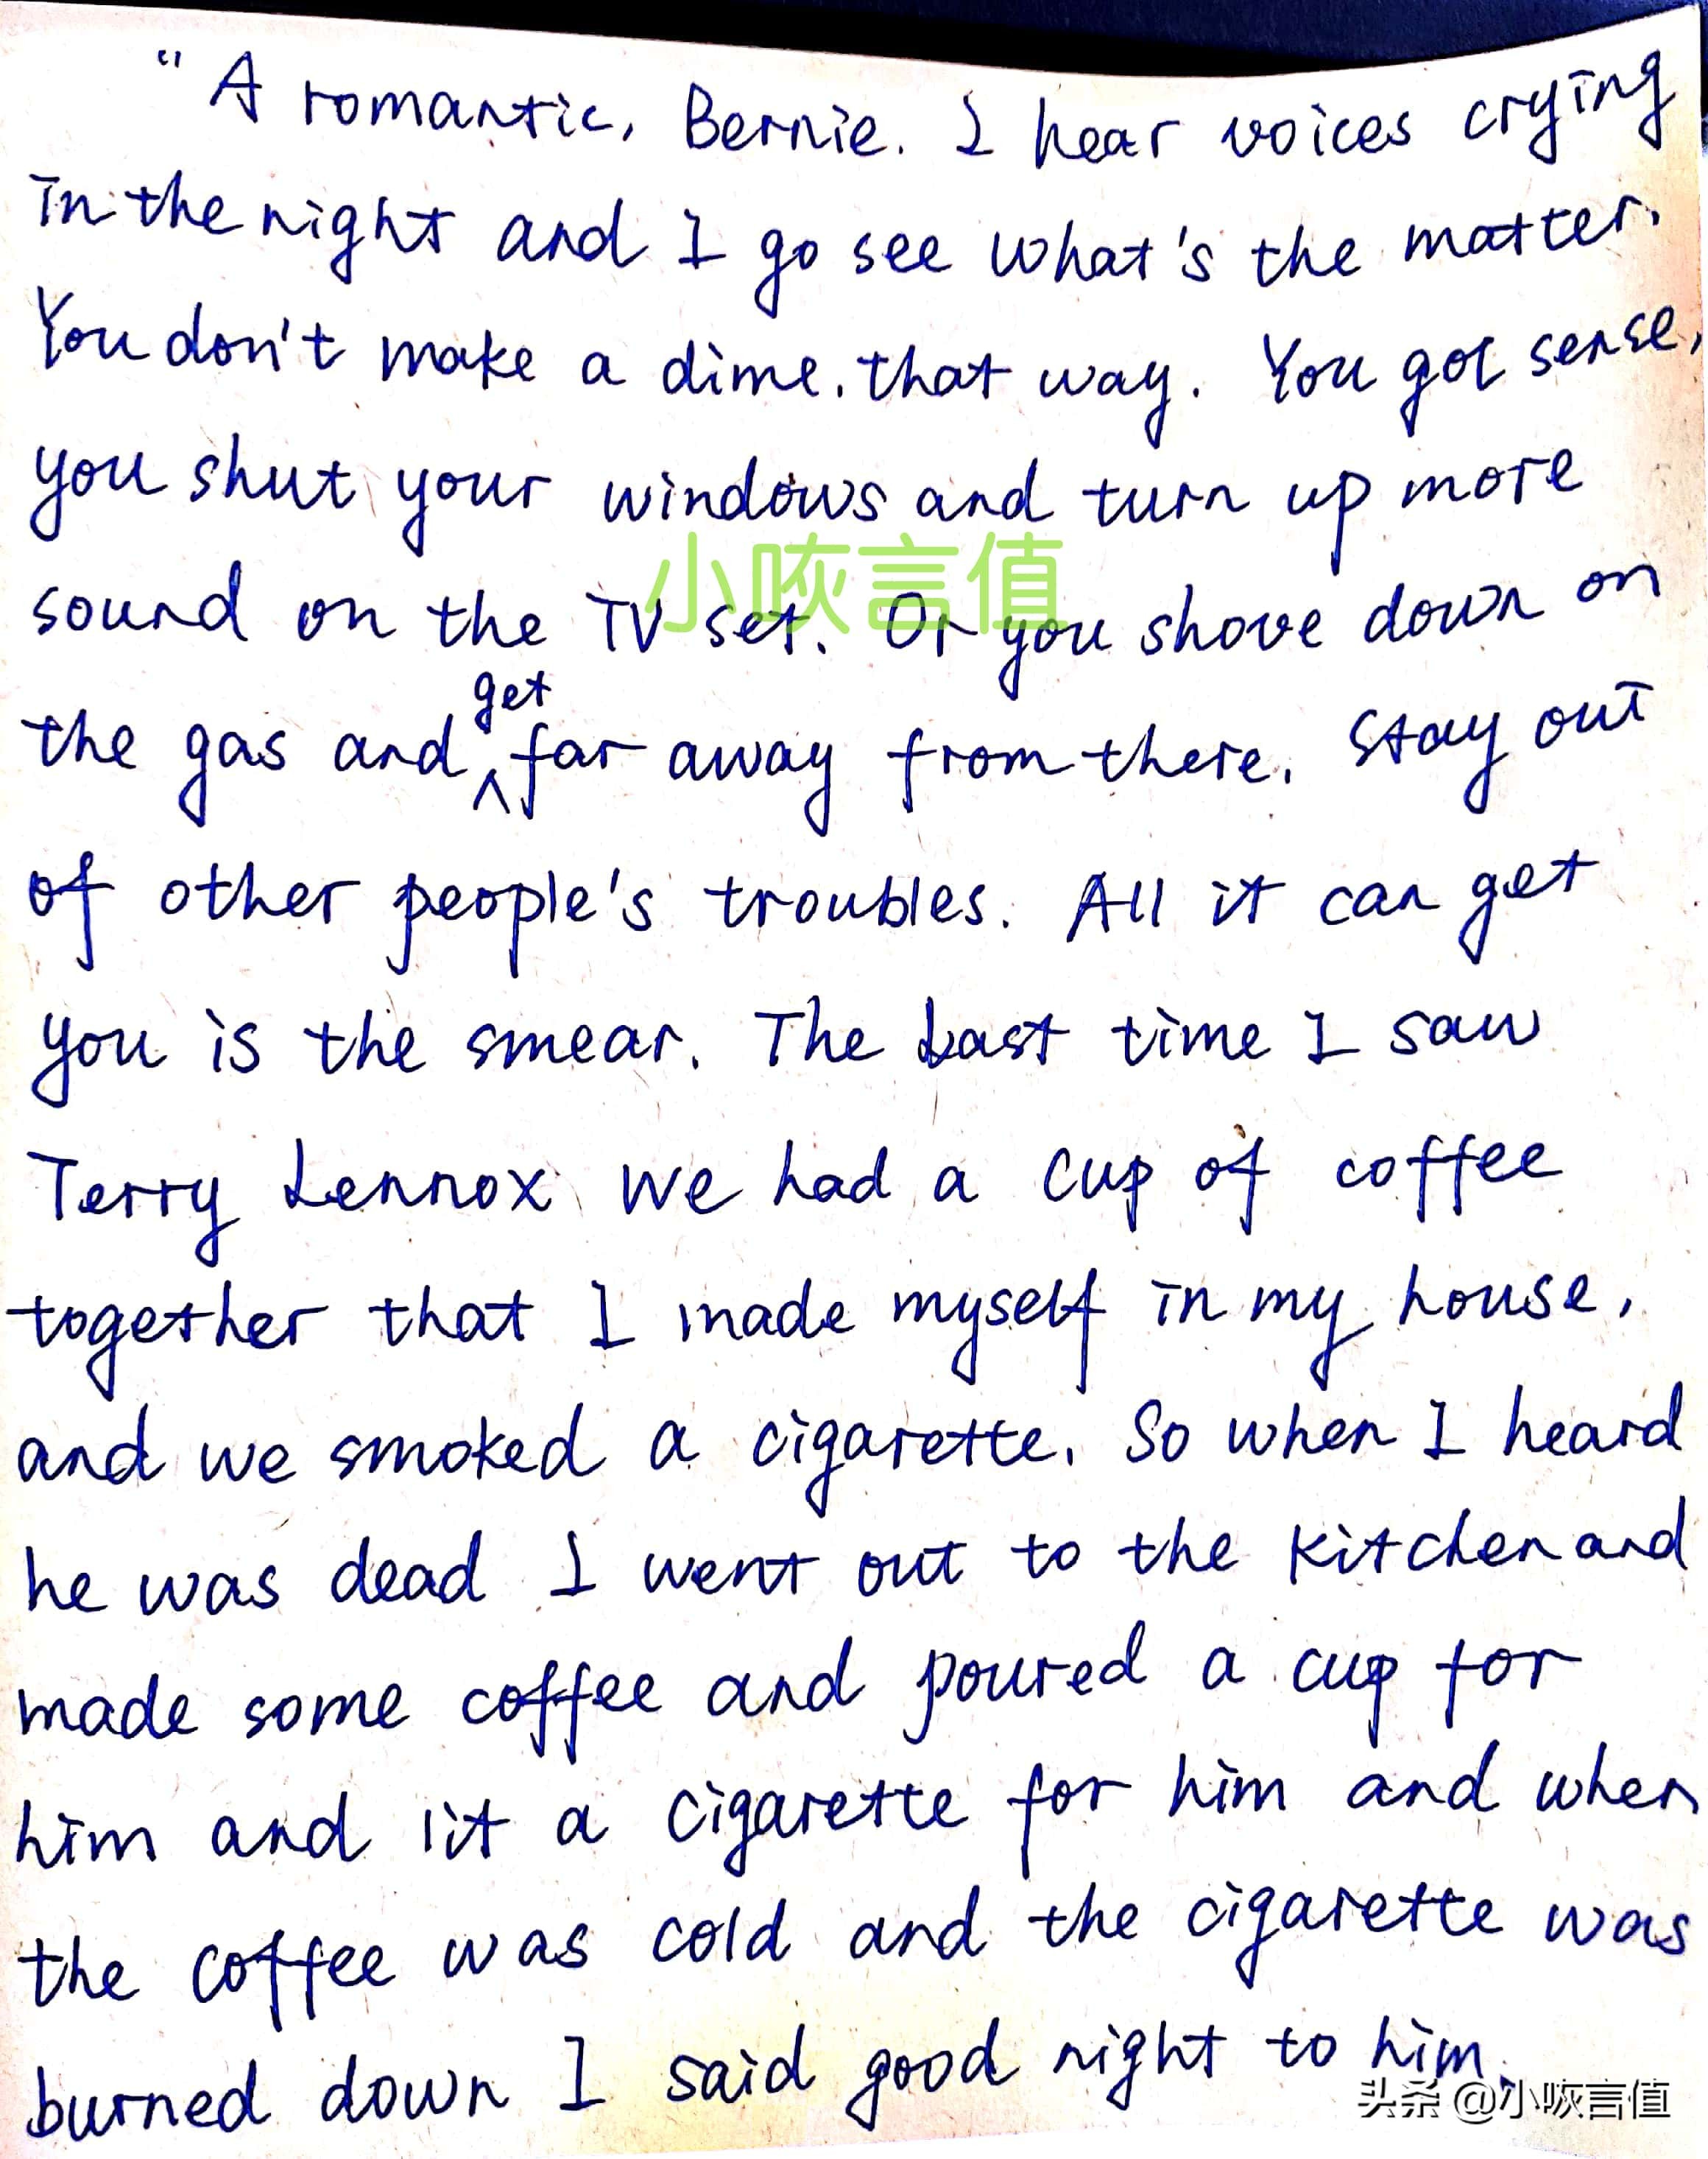 “A romantic, Bernie. I hear voices crying
in the night and I go see what's the matter.
You don't make a dime that way. You got sense,
you shut your windows and turn up more
小咴言值
sound on the TV set. Or you shove down on
the gas and get far away from there. Stay out
of other people's troubles. All it can get
you is the smear. The last time I saw
Terry Lennox we had a cup of coffee
together that I made myself in my house,
and we smoked a cigarette. So when I heard
he was dead I went out to the kitchen and
made some coffee and poured a cup for
him and lit a cigarette for him and when
the coffee was cold and the cigarette was
burned down I said good night to him.
头条 @小咴言值